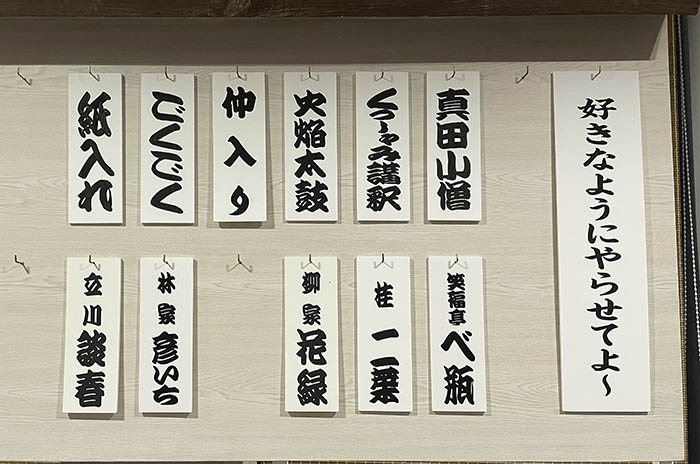 好きなようにやらせてよ～
真田小僧
くっしゃみ講釈
火焔太鼓
仲入り
ごくごく
紙入れ
笑福亭べ瓶
桂二葉
柳家花緑
林家彦いち
立川談春